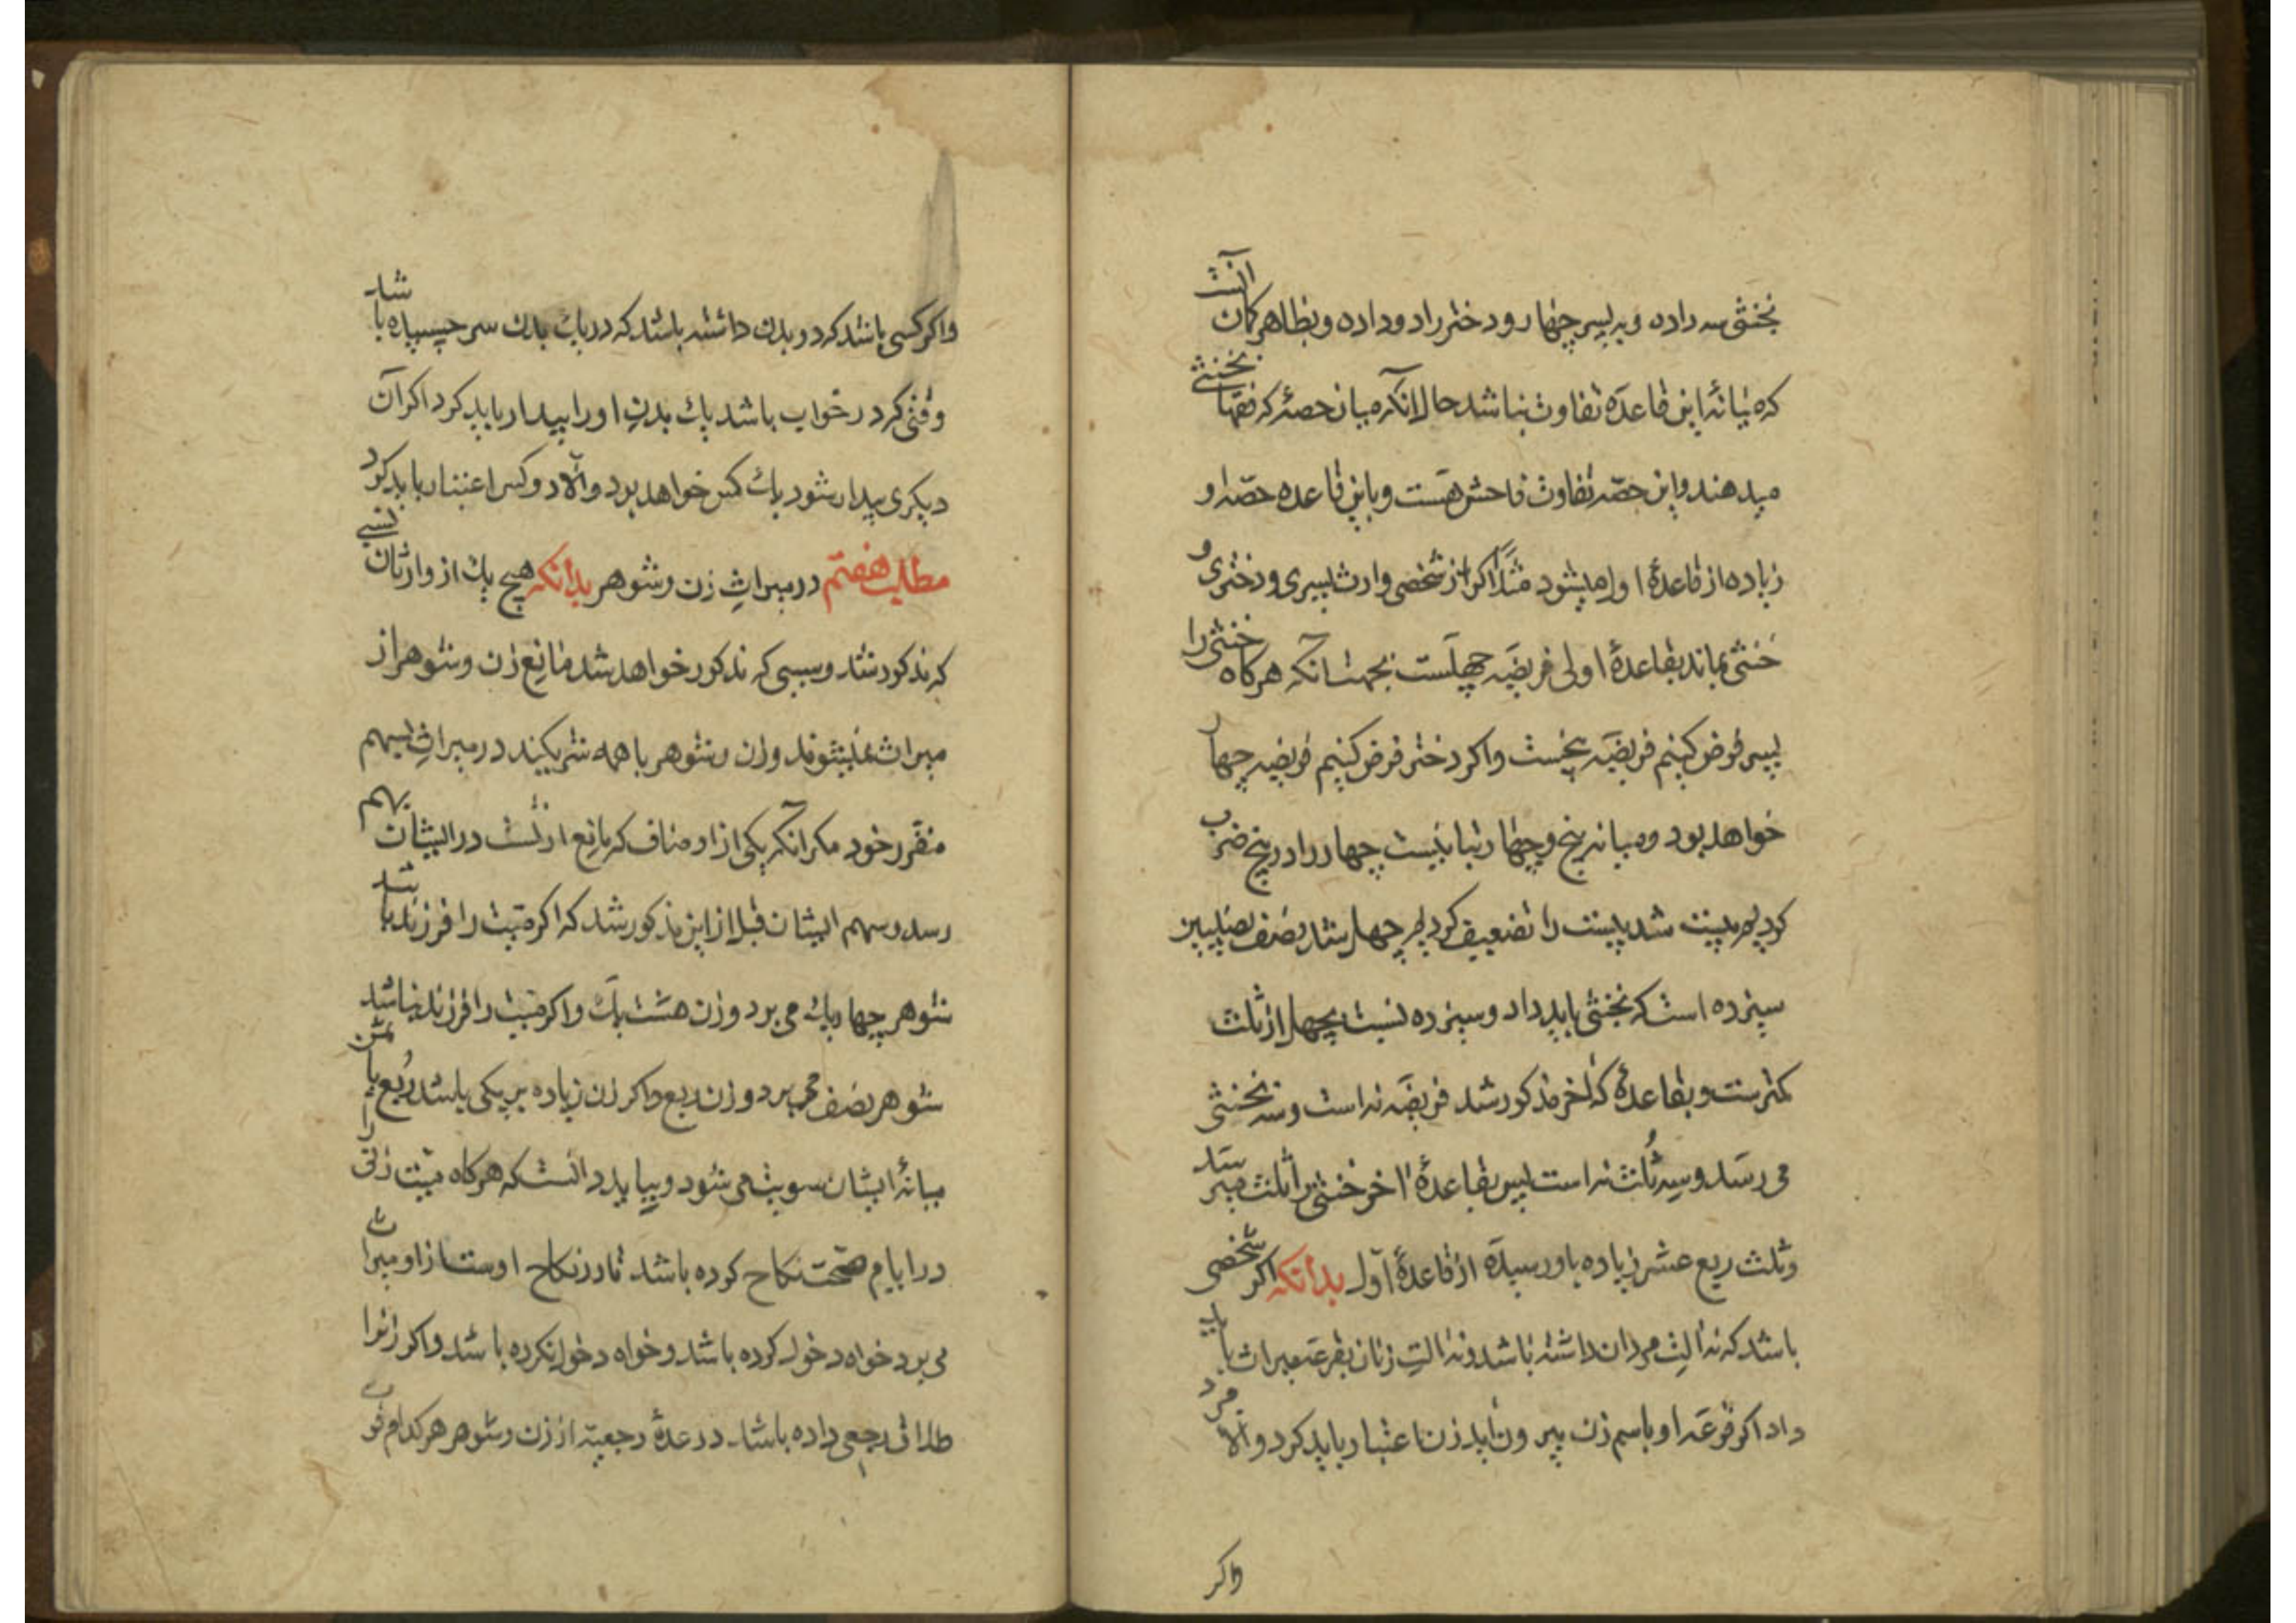 بخنثی سه داده و به پسر چهار و دختر را دو داده و بظاهر کمان آنست
که میانهٔ این قاعده تفاوت نباشد حال آنکه میان حصهٔ که فقها بخنثی
میدهند و این حصه تفاوت فاحش هست و باین قاعده حصه او
زیاده از قاعدهٔ اول میشود مثلاً اکر از شخصی وارث پسری و دختری و
خنثی بماند بقاعدهٔ اولی فریضه چهلست بجهت آنکه هرکاه خنثی را
پسر فرض کنیم فریضه پنجست و اکر دختر فرض کنیم فریضه چهار
خواهد بود و میانه پنج و چهار تباینست چهار را در پنج ضرب
کردیم بیست شد بیست را تضعیف کردیم چهل شد نصف نصیبین
سیزده است که بخنثی باید داد و سیزده نسبت بچهل از ثلث
کمترست و بقاعدهٔ که اخر مذکور شد فریضه نه است و سه بخنثی
می رسد و سه ثلث نه است پس بقاعدهٔ اخر خنثی را ثلث میرسد
و ثلث ربع عشر زیاده باو رسیده از قاعدهٔ اول بدانکه اکر شخصی
باشد که نه الت مردان داشته باشد و نه الت زنان بقرعه میراث باید
داد اکر قرعه او باسم زن بیرون آید زن اعتبار باید کرد و الا مرد
واکر
واکر کسی باشد که دو بدن داشته باشد که در یک بدن سر چسپیده باشد
وقتی که در خواب باشد یک بدن او را بیدار باید کرد اکر آن
دیکری بیدار شود یک کس خواهد بود و الا دو کس اعتبار باید کرد
مطلب هفتم در میراث زن و شوهر بدانکه هیچ یک از وارثان نسبی
که مذکور شد و سببی که مذکور خواهد شد مانع زن و شوهر از
میراث نمیشوند و زن و شوهر با همه شریکند در میراث بسهم
مقرر خود مکر آنکه یکی از اوصاف که مانع ارثست در ایشان بهم
رسد و سهم ایشان قبل از این مذکور شد که اکر میت را فرزند باشد
شوهر چهار یک می برد و زن هشت یک و اکر میت را فرزند نباشد
شوهر نصف می برد و زن ربع و اکر زن زیاده بر یکی باشد ربع یا ثمن
میانهٔ ایشان سویت می شود و بباید دانست که هرکاه میت زنی را
در ایام صحت نکاح کرده باشد تا در نکاح اوست از او میراث
می برد خواه دخول کرده باشد و خواه دخول نکرده باشد و اکر زنرا
طلاق رجعی داده باشد در عدهٔ رجعیه از زن و شوهر هر کدام فوت